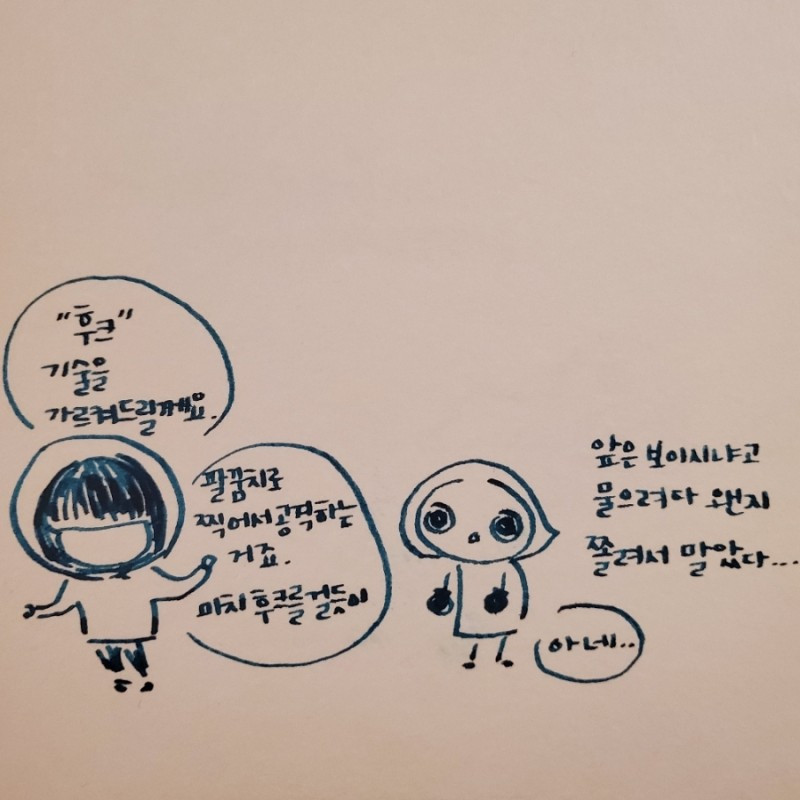 "후크"
기술을
가르켜드릴께요.
팔꿈치로
찍어서 공격하는
거죠.
마치 후크를 걸듯이
앞은 보이시냐고
물으려다 왠지
쫄려서 말았다...
아 네..